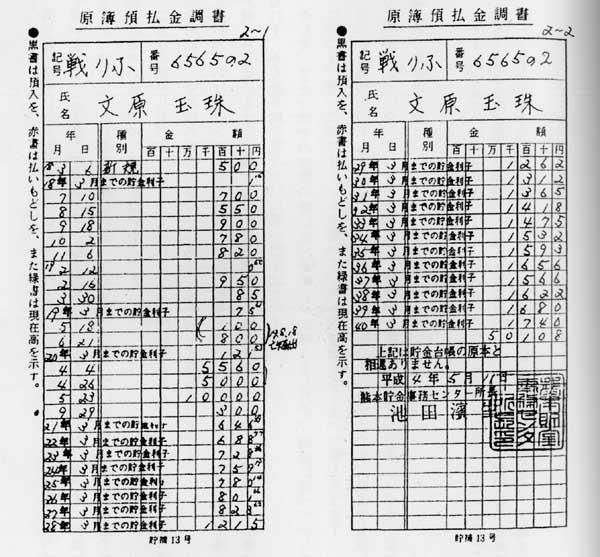 原簿預払金調書
2~1
●黒書は預入を、赤書は払いもどしを、また緑書は現在高を示す。
記号 戦りふ 番号 656502
氏名 文原玉珠
年月日 種別 金額
百十万千百十円
18 3 6 新規 500
18年3月までの貯金利子
7 10 700
8 15 550
9 18 900
10 2 780
11 6 820
19 2 12
2 16 950
3 30 85
19年3月までの貯金利子 75
5 18 100
6 21 800
20年3月までの貯金利子 121
4 4 5560
4 26 5000
5 23 10000
9 29 300
21年3月までの貯金利子 646
22年3月までの貯金利子 688
23年3月までの貯金利子 728
24年3月までの貯金利子 759
25年3月までの貯金利子 780
26年3月までの貯金利子 801
27年3月までの貯金利子 823
28年3月までの貯金利子 1215
貯補13号
原簿預払金調書
2~2
●黒書は預入を、赤書は払いもどしを、また緑書は現在高を示す。
記号 戦りふ 番号 656502
氏名 文原玉珠
年月日 種別 金額
百十万千百十円
29年3月までの貯金利子 1262
30年3月までの貯金利子 1312
31年3月までの貯金利子 1365
32年3月までの貯金利子 1418
33年3月までの貯金利子 1475
34年3月までの貯金利子 1532
35年3月までの貯金利子 1593
36年3月までの貯金利子 1656
37年3月までの貯金利子 1566
38年3月までの貯金利子 1622
39年3月までの貯金利子 1680
40年3月までの貯金利子 1740
50108
上記は貯金台帳の原本と
相違ありません。
平成4年5月11日
熊本貯金事務センター所長
池田濱
貯補13号